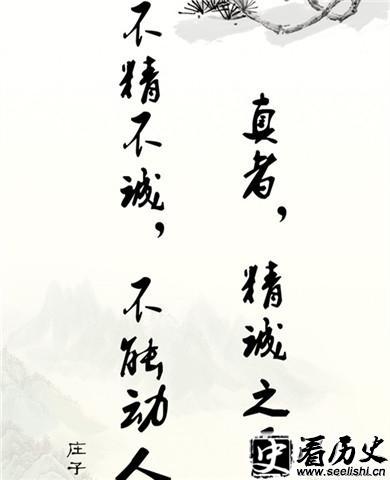 真者，精诚之
不精不诚，不能动人
庄子
史看历史
www.seelishi.cn